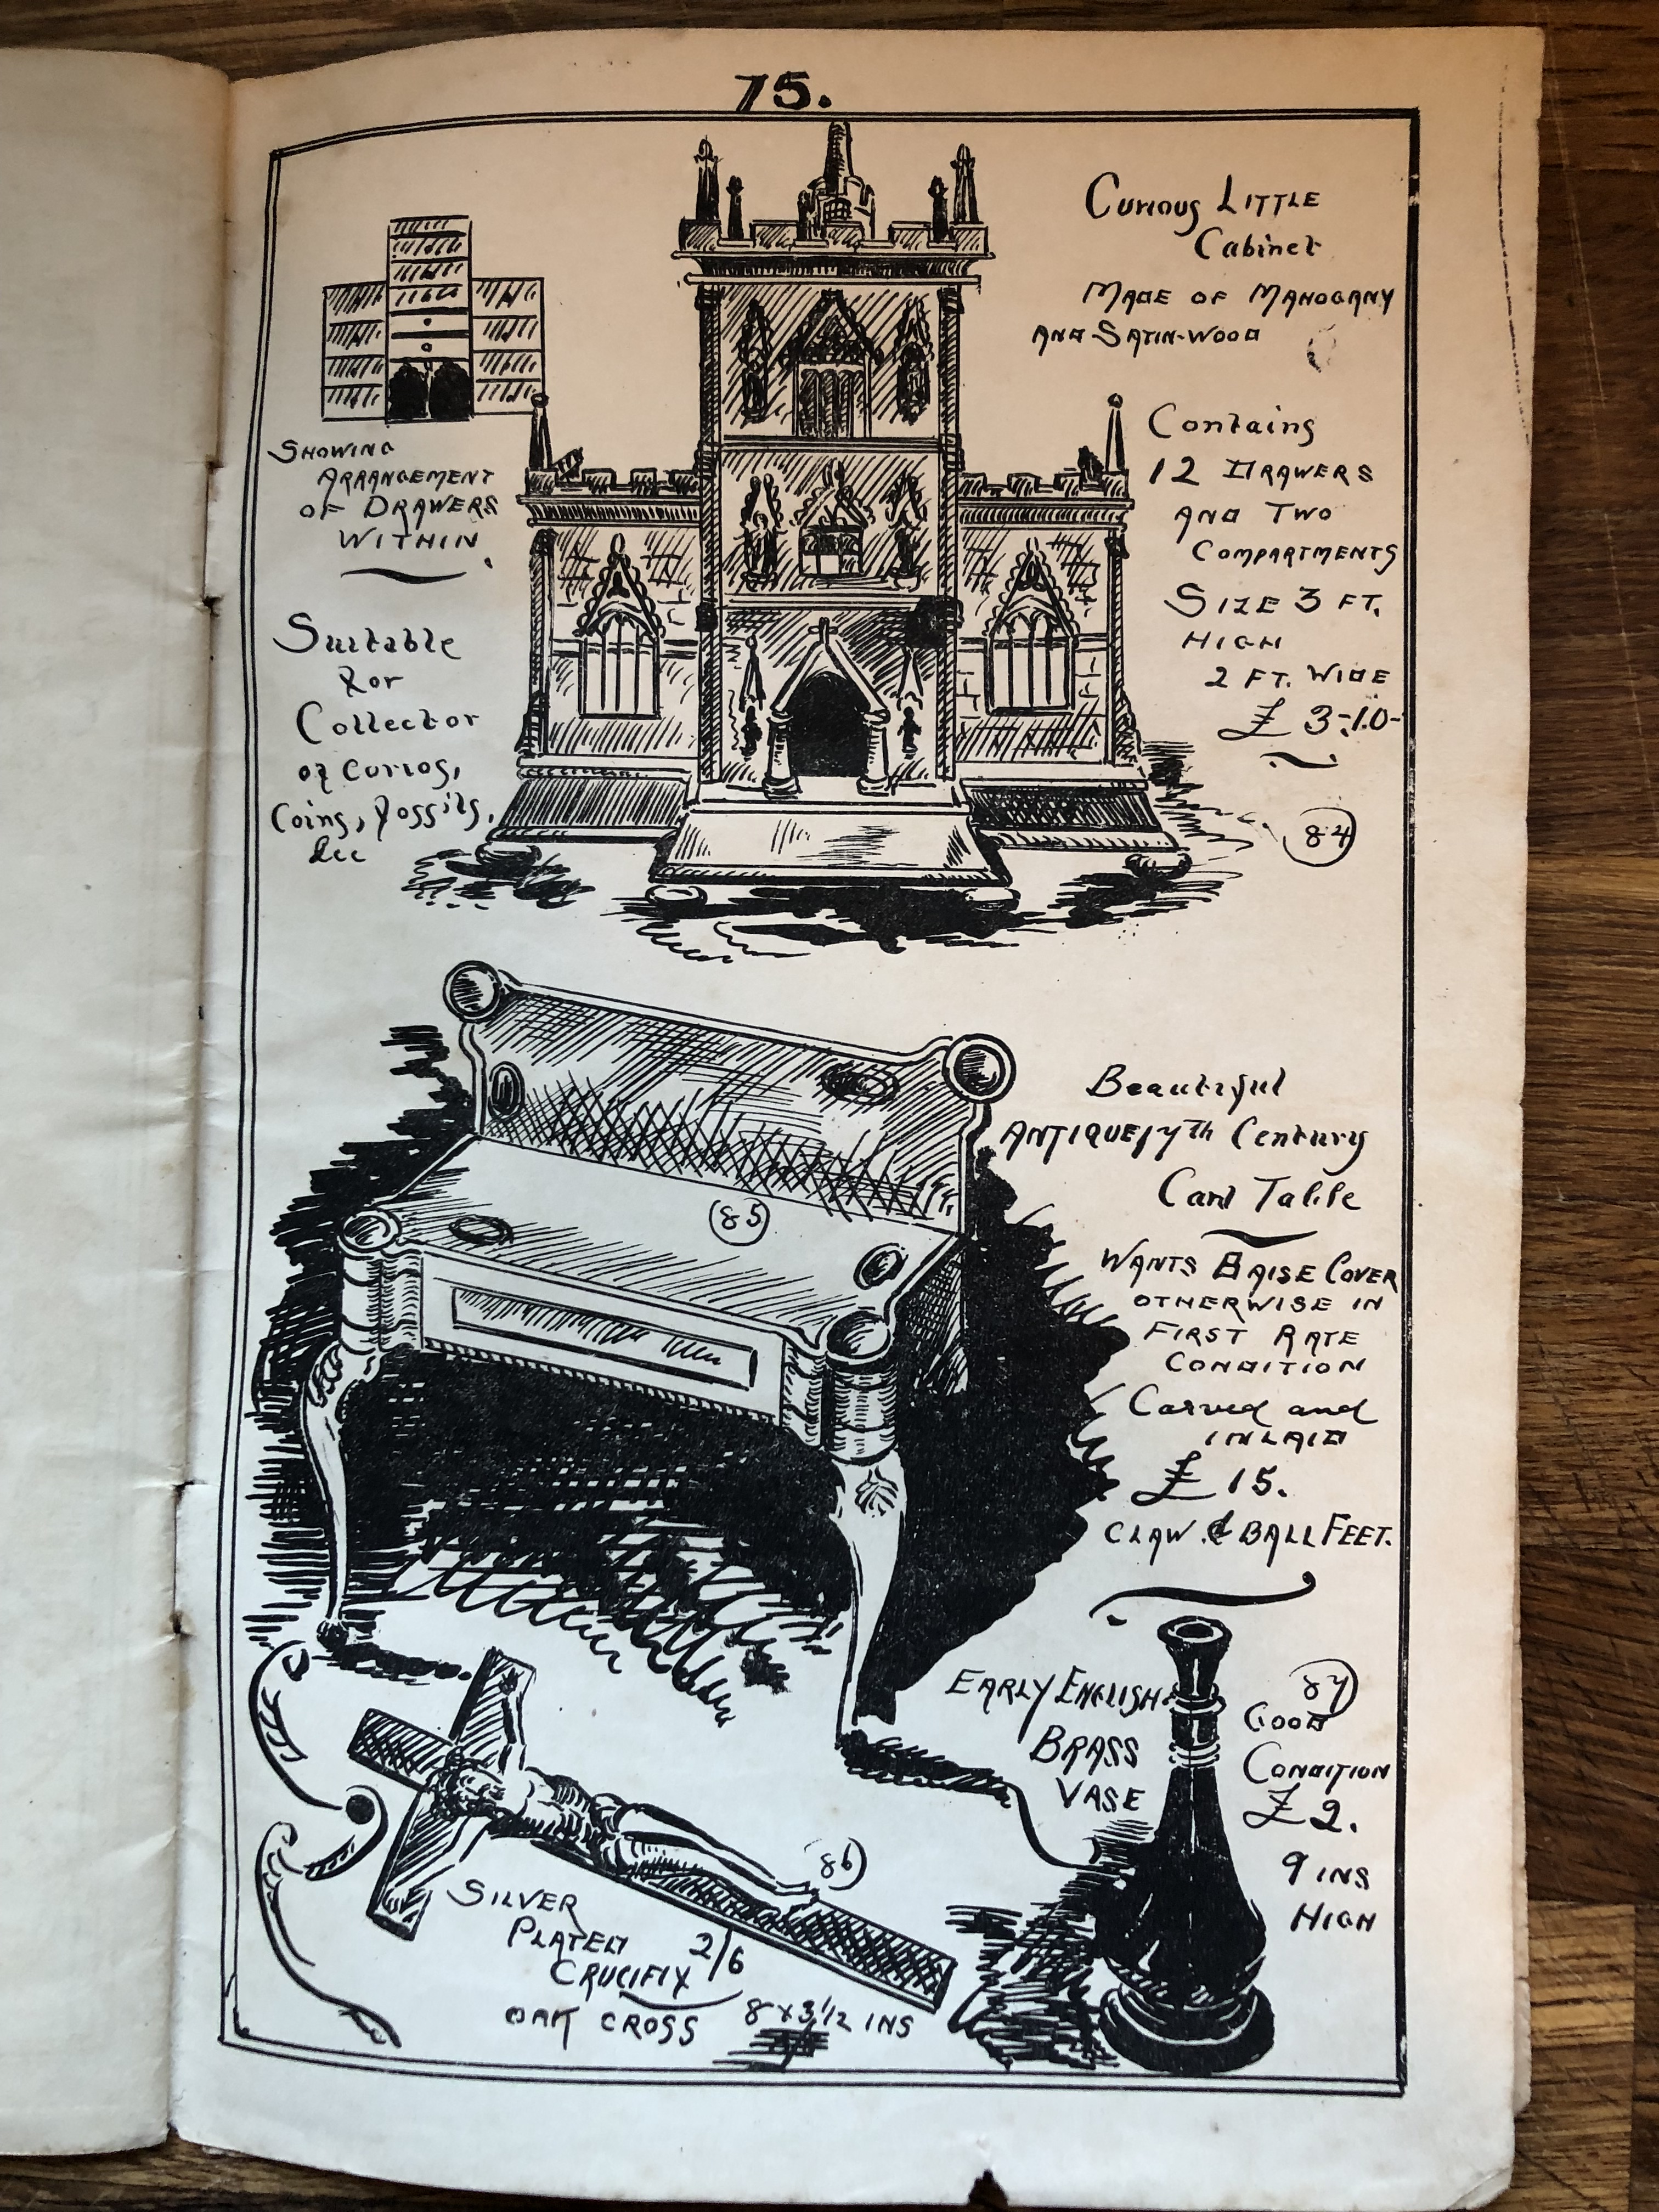 75.
Curious LITTLE
Cabinet
MADE OF MAHOGANY
AND SATIN-WOOD
SHOWING
ARRANGEMENT
OF DRAWERS
WITHIN.
Suitable
for
Collector
of curios,
Coins, fossils,
&cc
Contains
12 DRAWERS
AND TWO
COMPARTMENTS
SIZE 3 FT.
HIGH
2 FT. WIDE
£ 3-10-
84
85
Beautiful
ANTIQUE 17th Century
Card Table
WANTS BAISE COVER
OTHERWISE IN
FIRST RATE
CONDITION
Carved and
INLAID
£ 15.
CLAW & BALL FEET.
86
SILVER
PLATED
CRUCIFIX 2/6
OAK CROSS 8 x 3 1/2 INS
EARLY ENGLISH
BRASS
VASE
87
GOOD
CONDITION
£ 2.
9 INS
HIGH